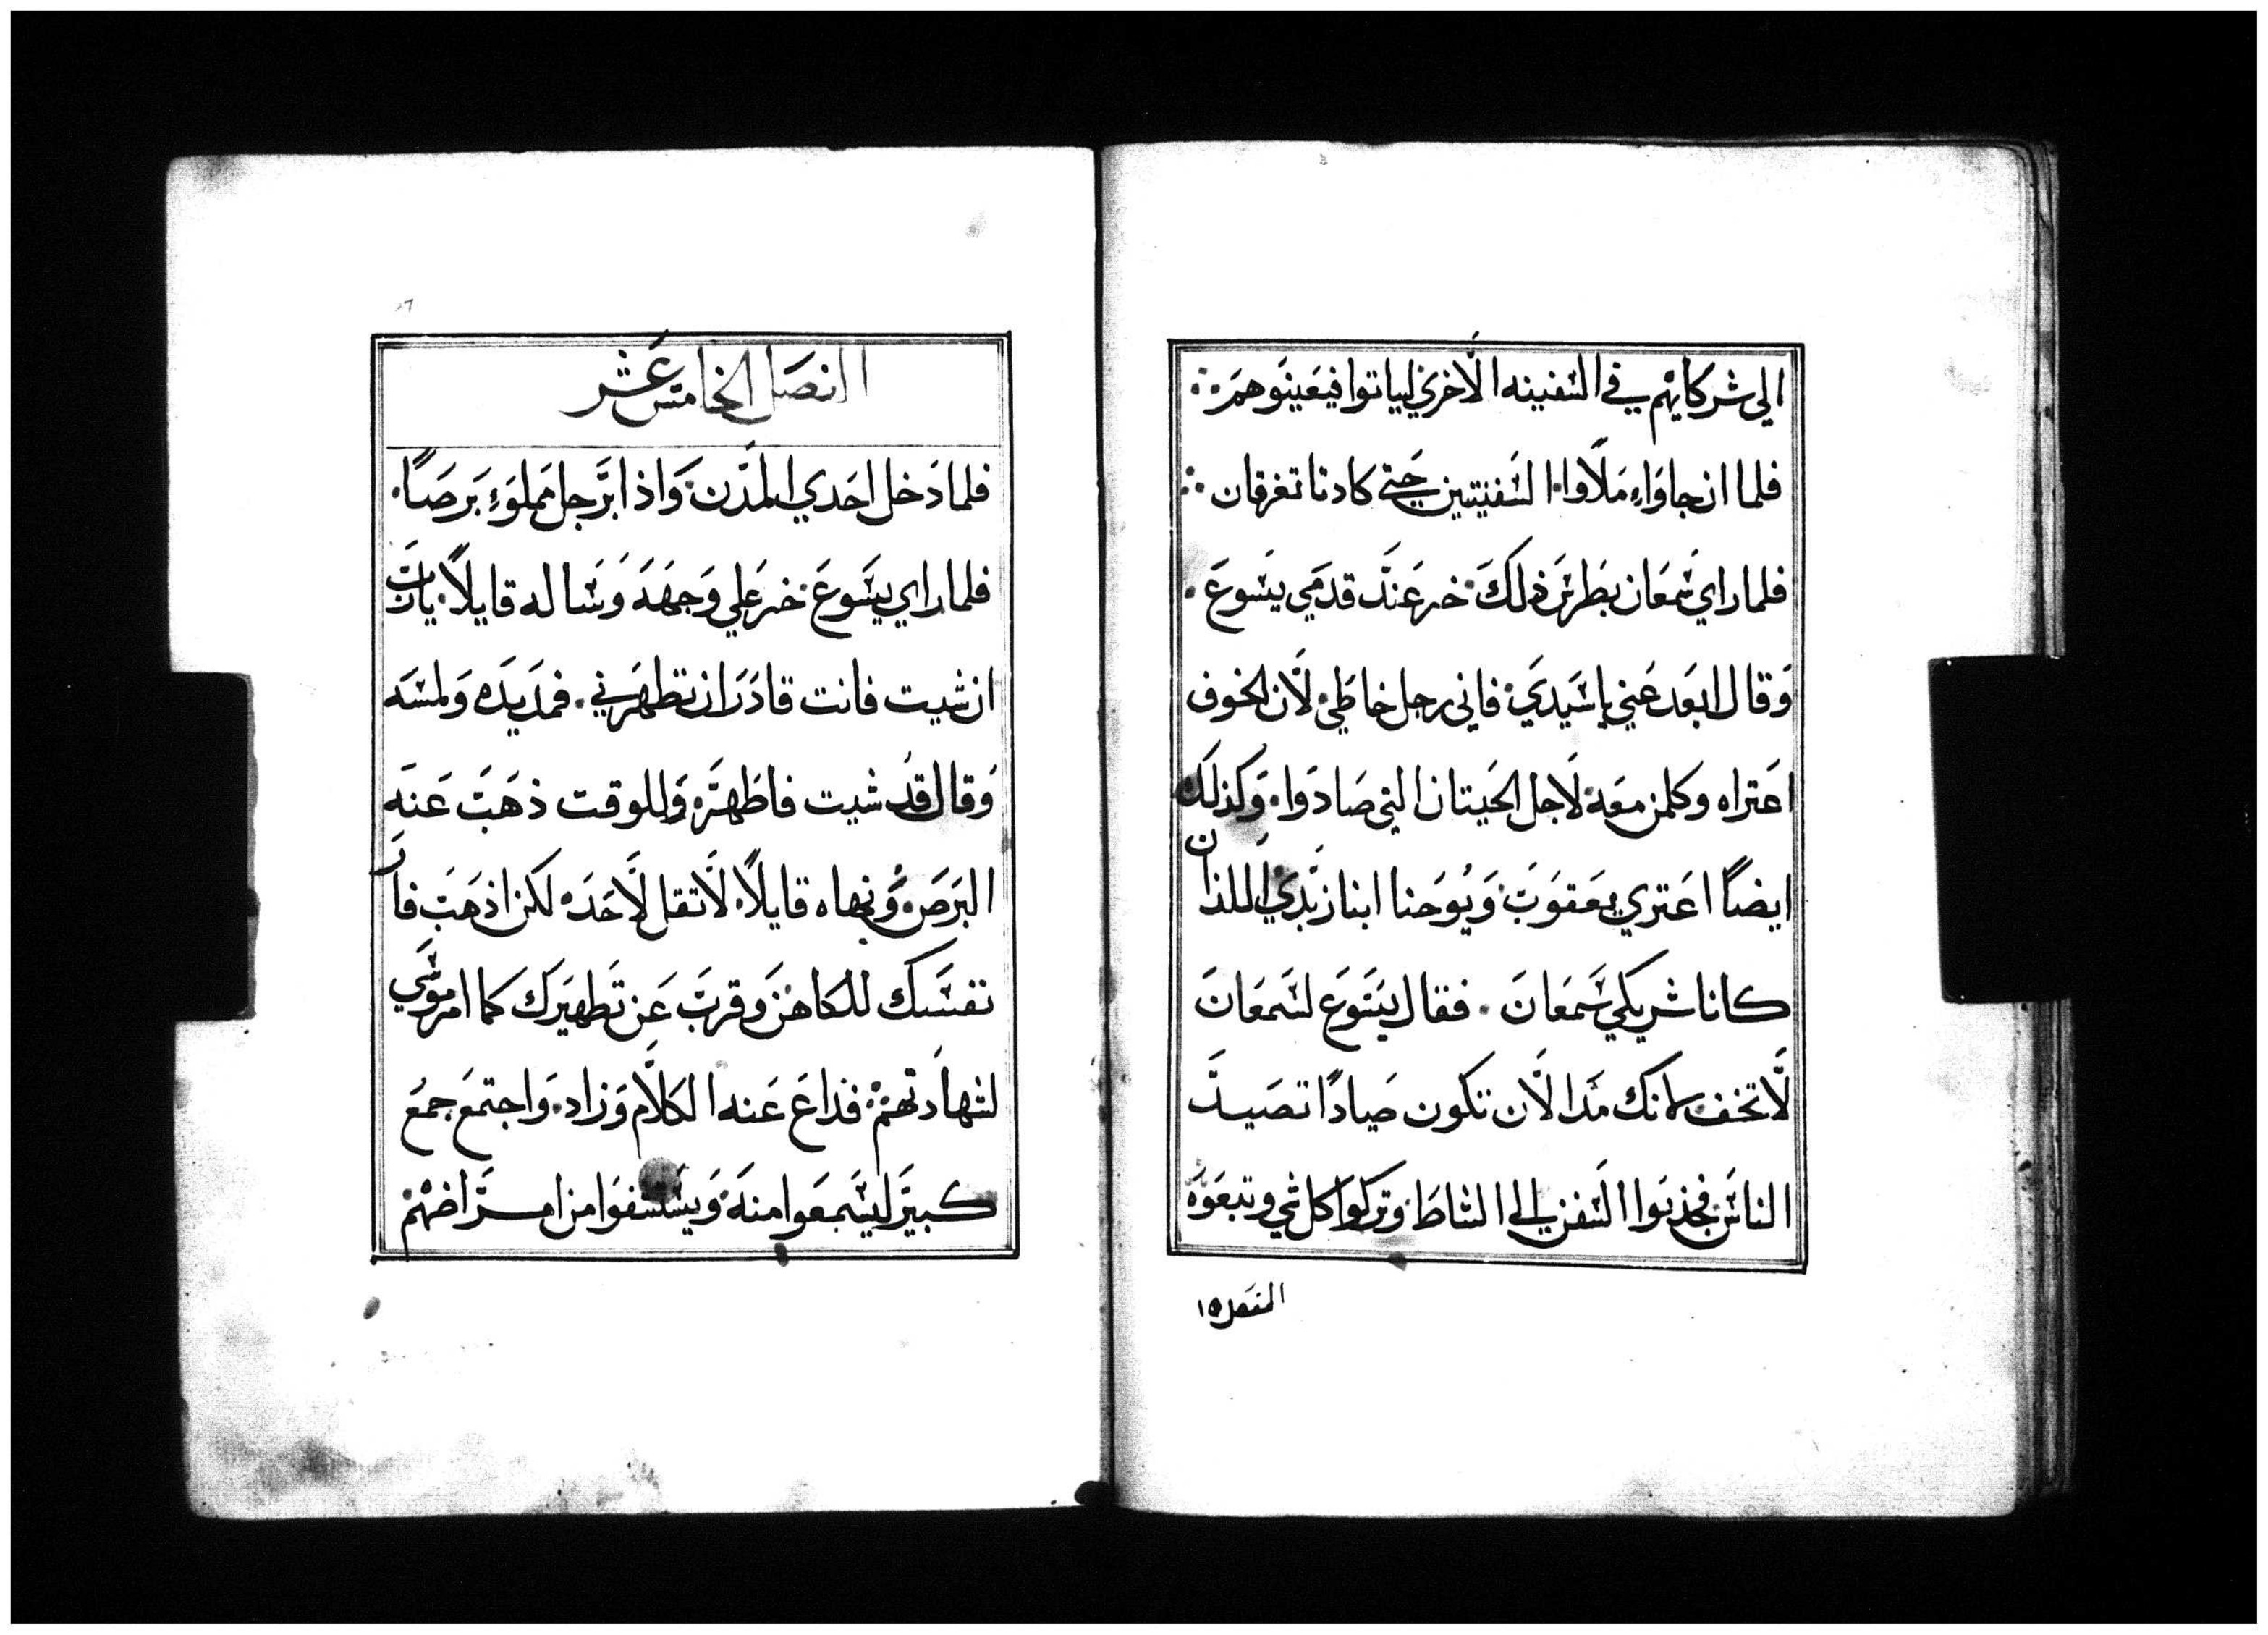 الي شركايهم في السفينه الاخري لياتوا فيعينوهم ∴
فلما ان جاواء ملاوا السفينتين حتي كادتا تغرقان ∴
فلما راي سمعان بطرس ذلك خر عند قدمي يسوع .
وقال ابعد عني ياسيدي فاني رجل خاطي لان الخوف
اعتراه وكلمن معه لاجل الحيتان التي صادوا وكذلك
ايضاً اعتري يعقوب ويوحنا ابنا زبدي اللذان
كانا شريكي سمعان . فقال يسوع لسمعان
لا تخف لانك مذ الان تكون صياداً تصيد
الناس فجذبوا السفن الي الشاط وتركوا كل شي وتبعوه
الفصل ١٥
الفصل الخامس عشر
فلما دخل احدي المدن واذا برجل مملوء برصاً .
فلما راي يسوع خر علي وجهه وساله قايلاً يارب
ان شيت فانت قادر ان تطهرني . فمد يده ولمسه
وقال قد شيت فاطهر وللوقت ذهب عنه
البرص ونهاه قايلاً لا تقل لاحد لكن اذهب فار
نفسك للكاهن وقرب عن تطهيرك كما امر موسي
لشهادتهم فذاع عنه الكلام وزاد واجتمع جمع
كبير ليسمعوا منه ويستشفوا من امراضهم